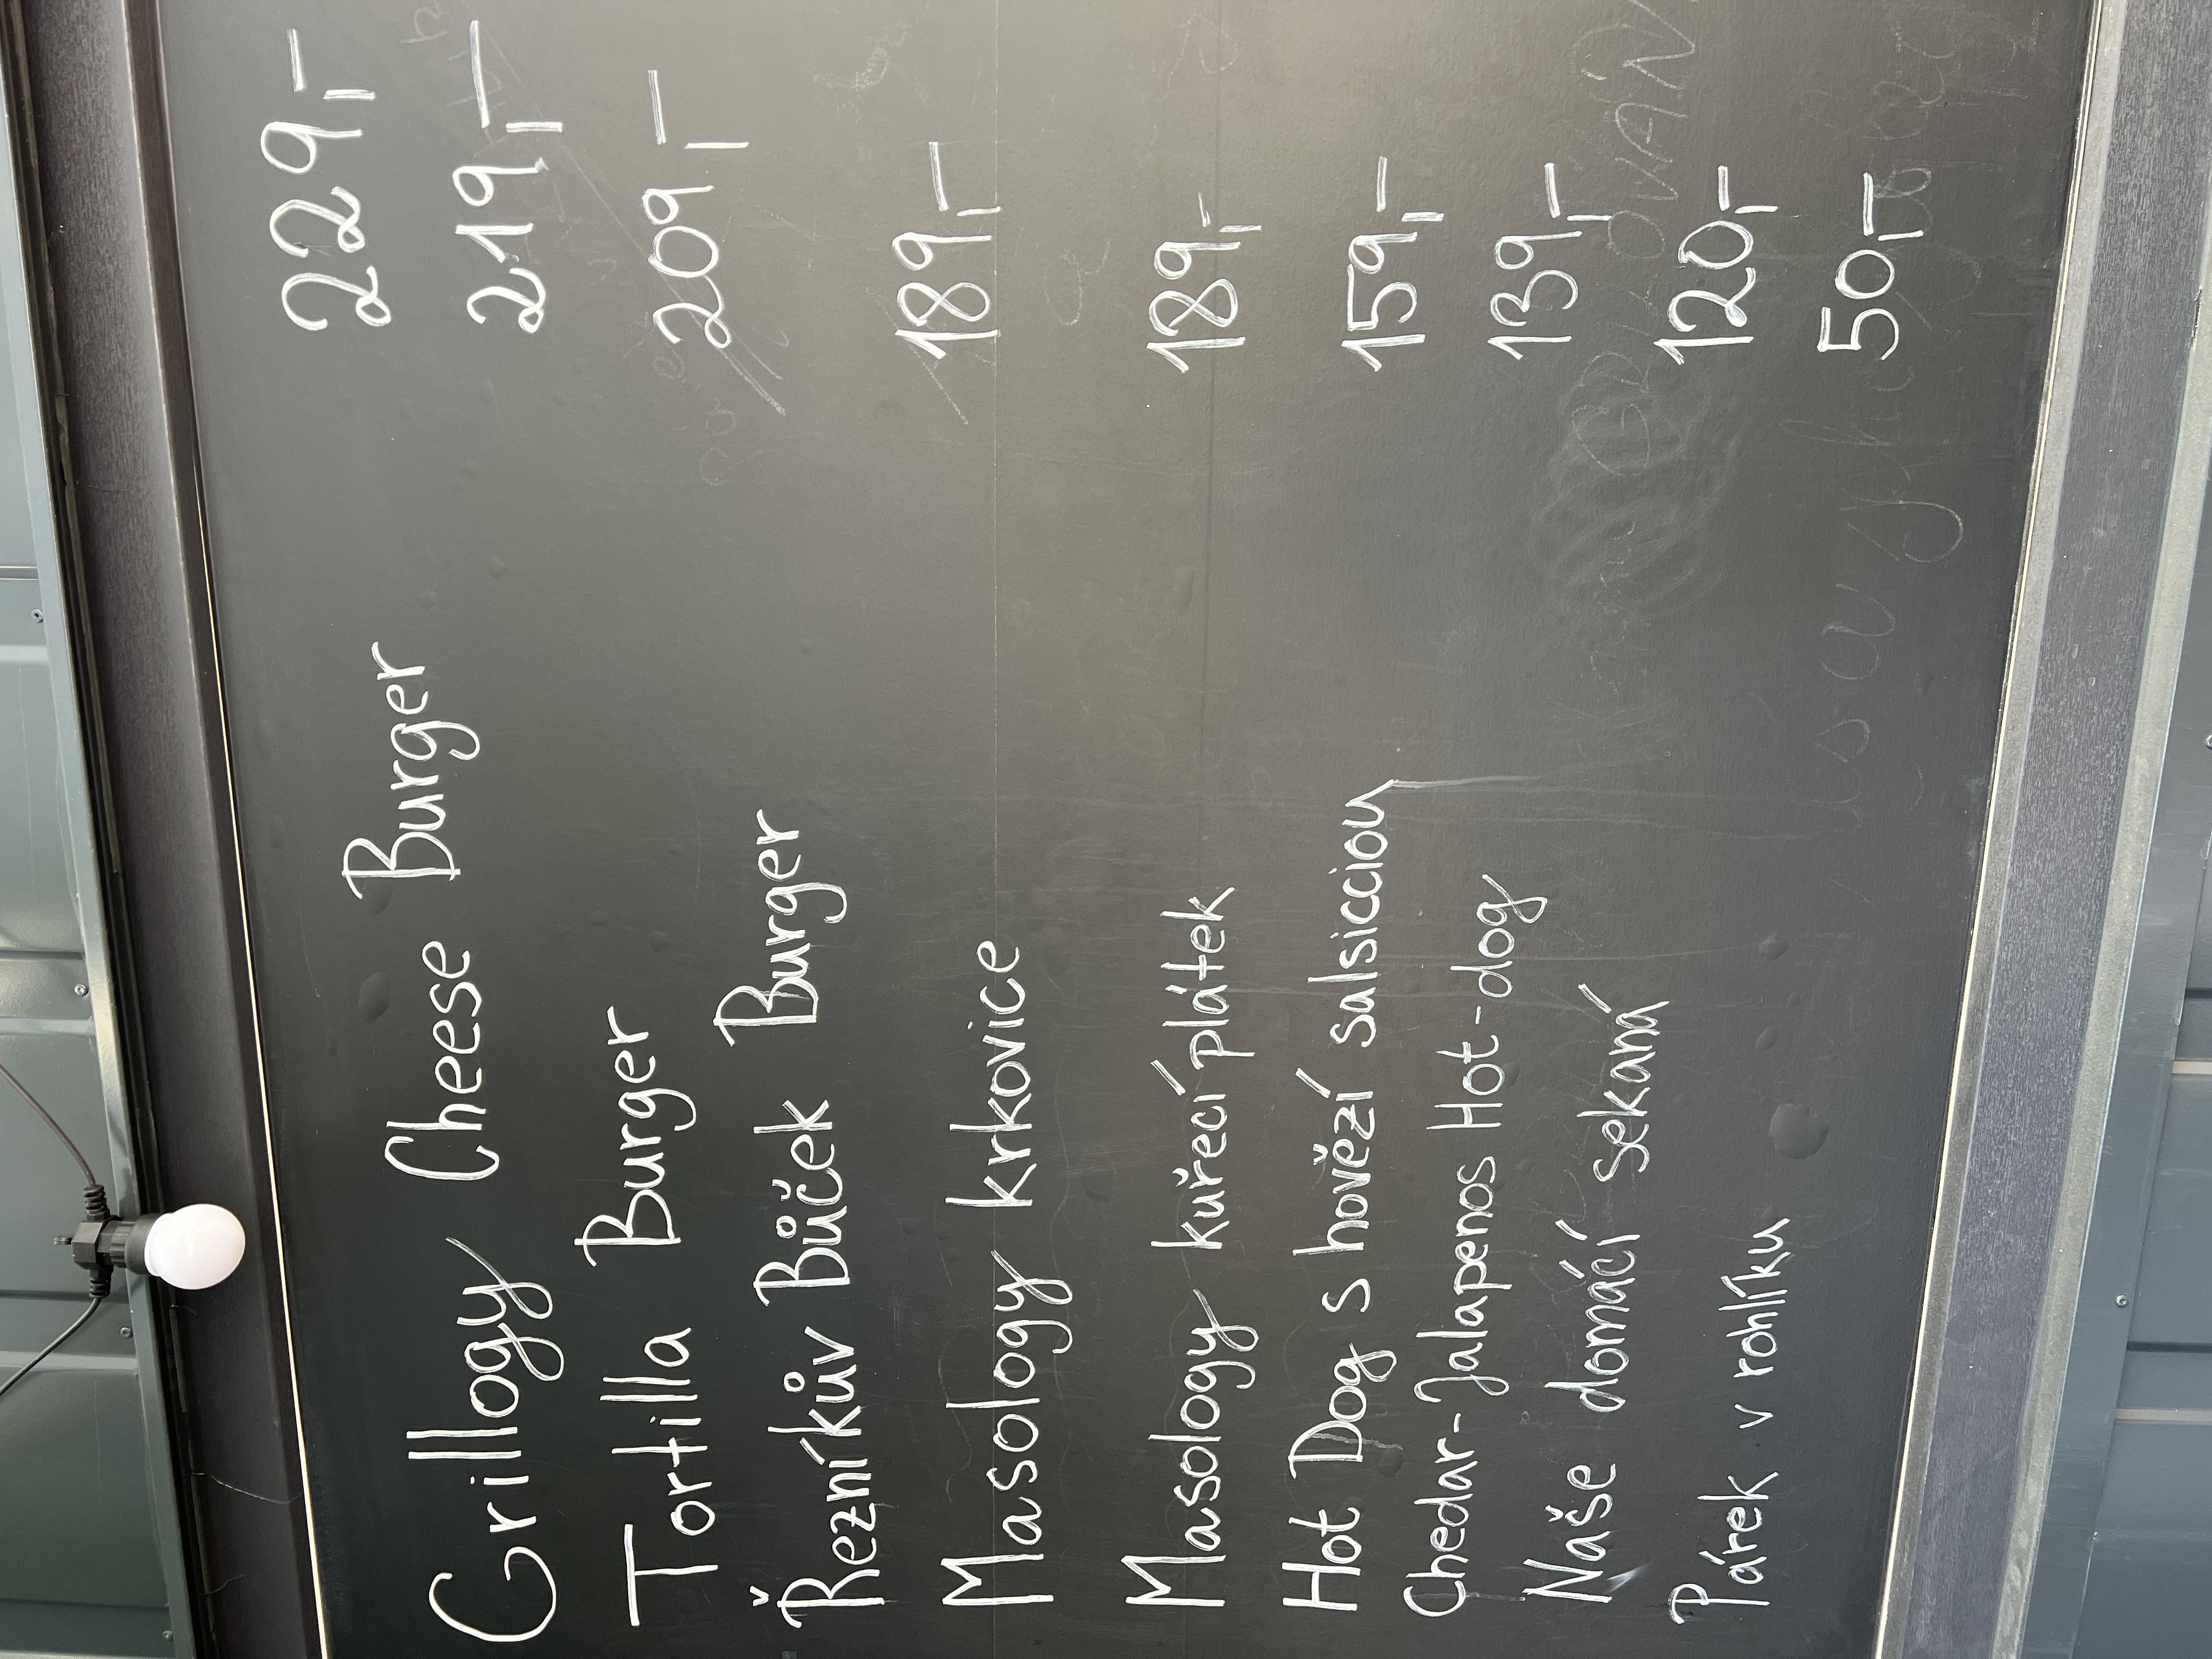 Grillogy Cheese Burger 229,-
Tortilla Burger 219,-
Řezníkův Bůček Burger 209,-
Masology krkovice 189,-
Masology kuřecí plátek 189,-
Hot Dog s hovězí salsicciou 159,-
Chedar-Jalapenos Hot-dog 139,-
Naše domácí sekaná 120,-
Párek v rohlíku 50,-